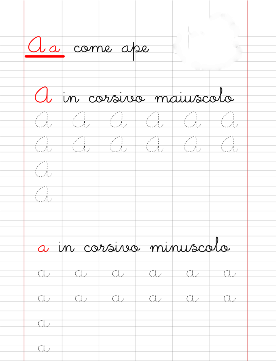 A a come ape
A in corsivo maiuscolo
A A A A A A
A A A A A A
A
A
a in corsivo minuscolo
a a a a a a
a a a a a a
a
a